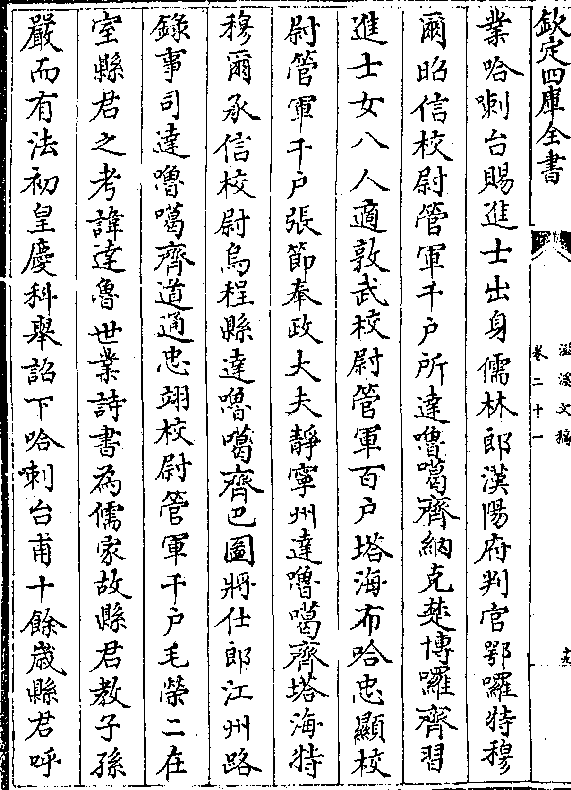 欽定四庫全書
滋溪文稿
卷二十一
業哈喇台賜進士出身儒林郎漢陽府判官鄂囉特穆
爾昭信校尉管軍千戸所達嚕噶齊納克楚博囉齊習
進士女八人適敦武校尉管軍百戸塔海布哈忠顯校
尉管軍千戸張節奉政大夫靜寧州達嚕噶齊塔海特
穆爾承信校尉烏程縣達嚕噶齊巴圖將仕郎江州路
錄事司達嚕噶齊道通忠翊校尉管軍千戸毛榮二在
室縣君之考諱達魯世業詩書為儒家故縣君教子孫
嚴而有法初皇慶科舉詔下哈喇台甫十餘歳縣君呼